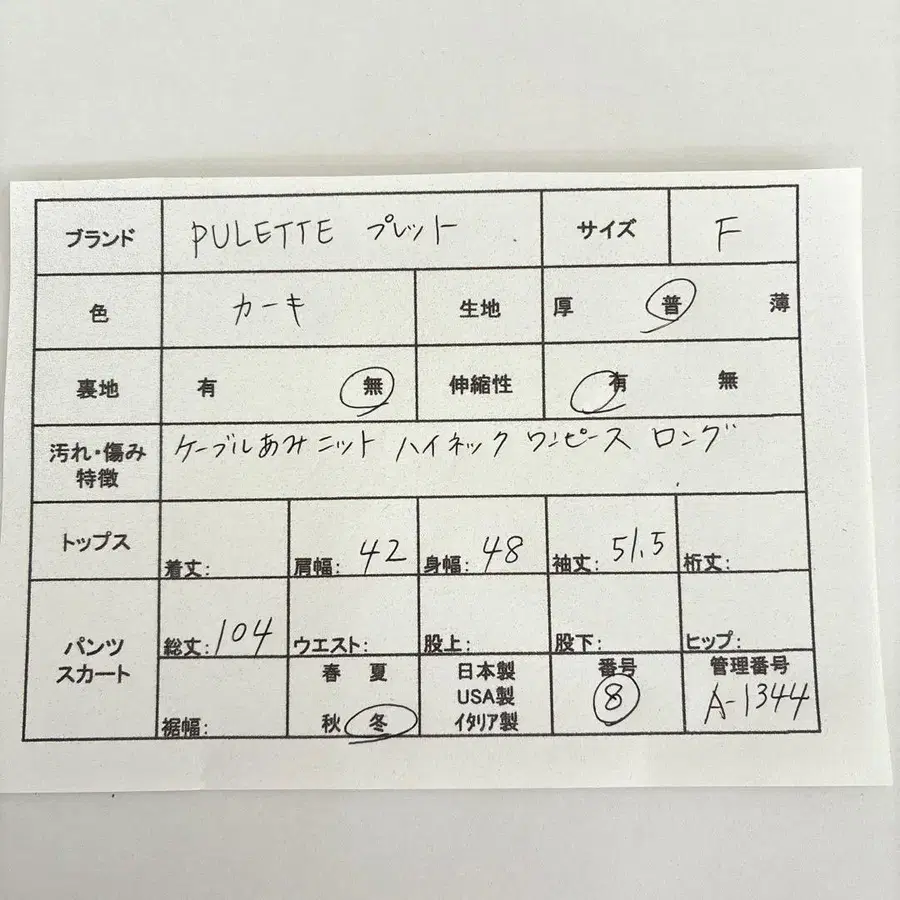 ブランド PULETTE プレット サイズ F
色 カーキ 生地 厚 普 薄
裏地 有 無 伸縮性 有 無
汚れ・傷み
特徴
ケーブルあみニット ハイネック ワンピース ロング
トップス 着丈: 肩幅: 42 身幅: 48 袖丈: 51.5 桁丈:
パンツ
スカート
総丈: 104 ウエスト: 股上: 股下: ヒップ:
裾幅:
春 夏
秋 冬
日本製
USA製
イタリア製
番号
8
管理番号
A-1344